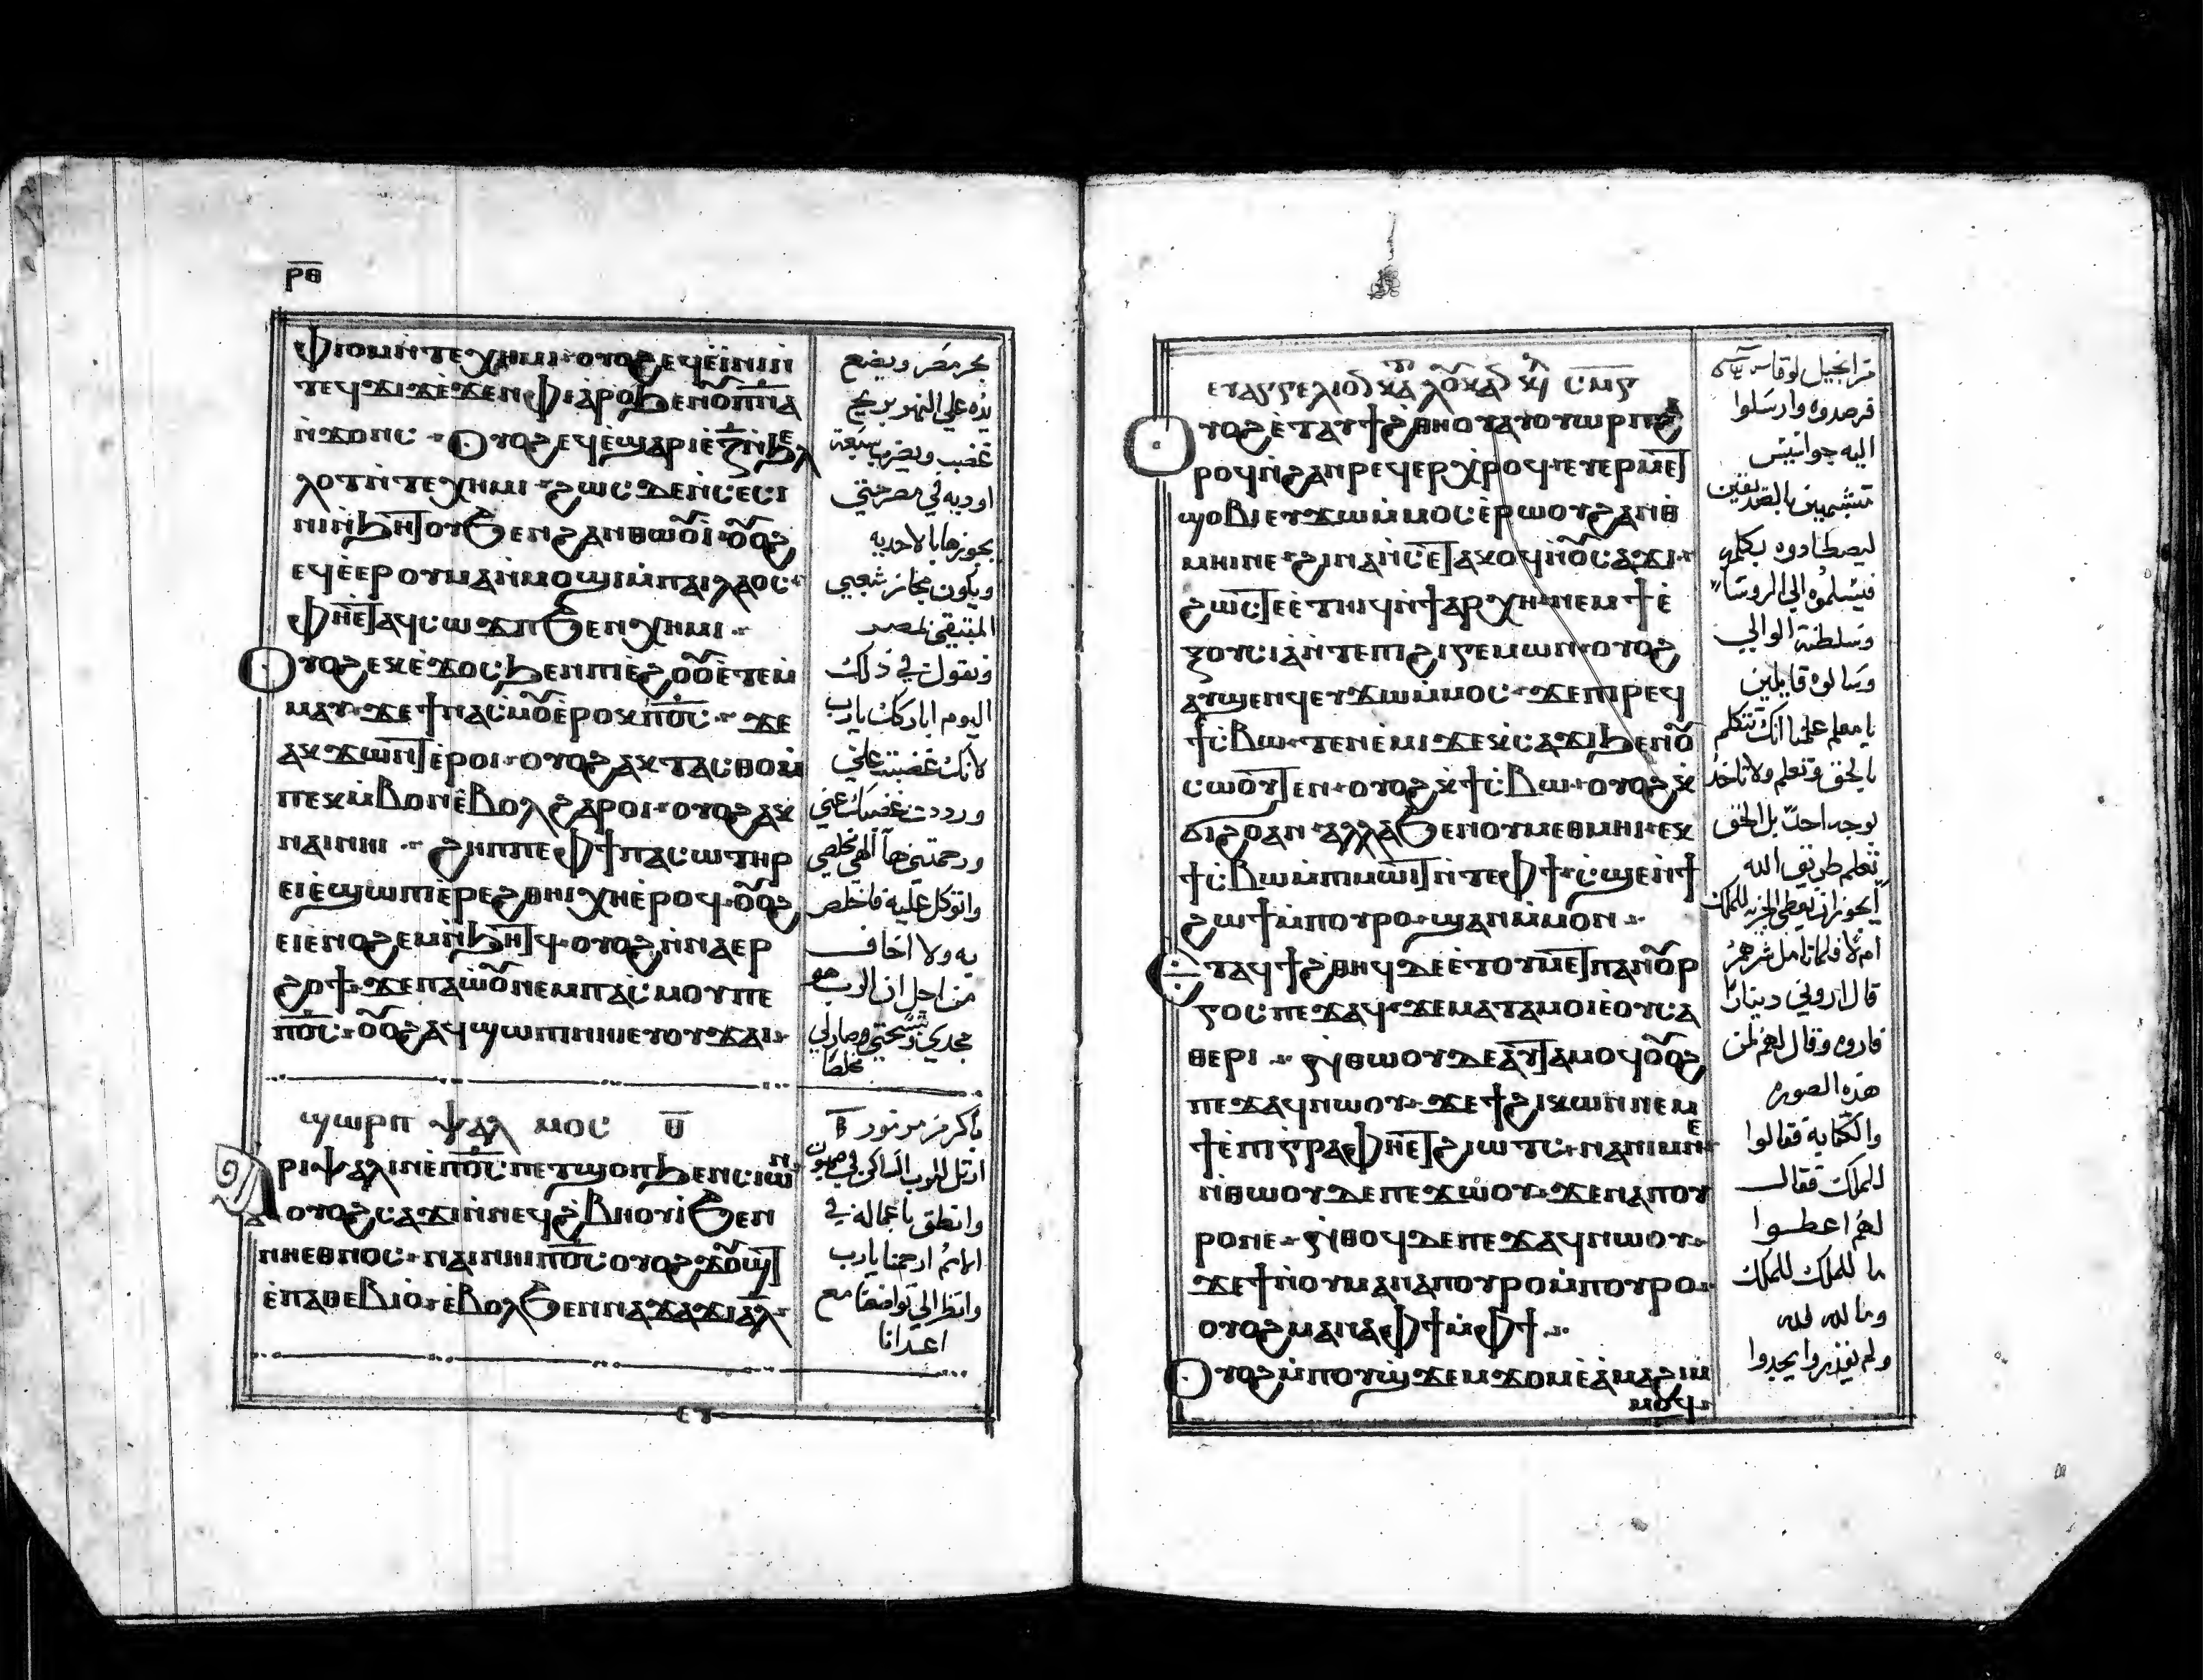 ⲣ̅ⲑ̅
ⲫⲓⲟⲙⲛ̀ⲧⲉⲭⲏⲙⲓ · ⲟⲩⲟϩ ⲉϥⲉ̀ⲓ̀ⲛⲓⲛ̀ⲛⲓ
ⲧⲉϥϫⲓϫ ⲉ̀ϫⲉⲛ ⲫⲓⲁⲣⲟ ϧⲉⲛⲟⲩⲡ̅ⲛ̅ⲁ̅
ⲛ̀ϫⲟⲛⲥ · Ⲟⲩⲟϩ ⲉϥⲉ̀ϣⲁⲣⲓ ⲉ̀ⲍ̅ ⲛ̀ϧⲉⲗ
ⲗⲟⲧ ⲛ̀ⲧⲉⲭⲏⲙⲓ · ϩⲱⲥ ⲇⲉ ⲛ̀ⲥⲉⲥⲓ
ⲛⲓⲛ̀ϧⲏⲧⲟⲩ ϧⲉⲛϩⲁⲛⲑⲱⲟⲩⲓ̀ · ⲟⲩⲟϩ
ⲉϥⲉ̀ⲉⲣⲟⲩⲙⲁⲛ̀ⲙⲟϣⲓ ⲙ̀ⲡⲁⲓⲗⲁⲟⲥ ·
ⲫⲏⲉ̀ⲧⲁϥⲥⲱϫⲡ ϧⲉⲛⲭⲏⲙⲓ ·
Ⲟⲩⲟϩ ⲉⲕⲉ̀ϫⲟⲥ ϧⲉⲛⲡⲓⲉ̀ϩⲟⲟⲩ ⲉ̀ⲧⲉⲙ̀
ⲙⲁⲩ · ϫⲉ ϯⲛⲁⲥ̀ⲙⲟⲩ ⲉ̀ⲣⲟⲕ ⲡ̅ⲟ̅ⲥ̅ · ϫⲉ
ⲁⲕϫⲱⲛⲧ ⲉ̀ⲣⲟⲓ · ⲟⲩⲟϩ ⲁⲕⲧⲁⲥⲑⲟ ⲙ̀
ⲡⲉⲕⲙ̀ⲃⲟⲛ ⲉ̀ⲃⲟⲗ ϩⲁⲣⲟⲓ · ⲟⲩⲟϩ ⲁⲕ
ⲛⲁⲓⲛⲏⲓ · ϩⲏⲡⲡⲉ ⲫϯ ⲡⲁⲥⲱⲧⲏⲣ
ⲉⲓⲉ̀ϣⲱⲡⲓ ⲉ̀ⲣⲉϩⲑⲏⲓ ⲭⲏ ⲉ̀ⲣⲟϥ · ⲟⲩⲟϩ
ⲉⲓⲉ̀ⲛⲟϩⲉⲙ ⲛ̀ϧⲏⲧϥ · ⲟⲩⲟϩ ⲛ̀ⲛⲁⲉⲣ
ϩⲟϯ · ϫⲉ ⲡⲁⲱⲟⲩ ⲛⲉⲙ ⲡⲁⲥ̀ⲙⲟⲩ ⲡⲉ
ⲡ̅ⲟ̅ⲥ̅ · ⲟⲩⲟϩ ⲁϥϣⲱⲡⲓ ⲛⲏⲓ ⲉⲩⲟⲩϫⲁⲓ ·
ϣⲱⲣⲡ ⲯⲁⲗ ⲙⲟⲥ ⲑ̅
Ⲁⲣⲓⲯⲁⲗⲓⲛ ⲉ̀ⲡ̅ⲟ̅ⲥ̅ ⲡⲉⲧϣⲟⲡ ϧⲉⲛⲥⲓⲱⲛ
ⲟⲩⲟϩ ⲥⲁϫⲓ ⲛ̀ⲛⲉϥϩ̀ⲃⲏⲟⲩⲓ̀ ϧⲉⲛ
ⲛⲓⲉⲑⲛⲟⲥ · ⲛⲁⲓⲛⲏⲓ ⲡ̅ⲟ̅ⲥ̅ ⲟⲩⲟϩ ϫⲟⲩϣⲧ
ⲉ̀ⲡⲁⲑⲉⲃⲓⲟ̀ · ⲉ̀ⲃⲟⲗ ϧⲉⲛⲛⲁϫⲁϫⲓ ⲁⲗ ·
ⲉⲩ
بحر مصر ويضع
يده على النهر بريح
غضب ويضرب سبعة
اوديه في مصر حتى
يجوزها بالاحديه
ويكون مجاز شعبي
المتبقي بمصر
وتقول في ذلك
اليوم اباركك يارب
لانك غضبت علي
ورددت غضبك عني
ورحمتني ها الهي مخلصي
واتوكل عليه فاخلص
به ولا اخاف
من اجل ان الرب هو
مجدي وتسبحتي وصار لي
مخلصا
باكر مزمور ⲑ̅
ارتل للرب الساكن في صهيون
وانطق باعماله في
الامم ارحمنا يارب
وانظر الى تواضعنا مع
اعدانا
ⲉⲩⲁⲅⲅⲉⲗⲓⲟⲛ ⲕⲁ ⲗⲟⲩⲕⲁⲛ ⲕⲉ ⲥ̅ⲙ̅ⲋ̅
Ⲟⲩⲟϩ ⲉ̀ⲧⲁⲩϯϩ̀ⲑⲏⲟⲩ ⲁⲩⲟⲩⲱⲣⲡ ϩⲁ
ⲣⲟϥ ⲛ̀ϩⲁⲛⲣⲉϥⲉⲣⲭ̀ⲣⲟϥ · ⲉⲩⲉⲣⲙⲉⲧ
ϣⲟⲃⲓ ⲉⲩϫⲱ ⲙ̀ⲙⲟⲥ ⲉ̀ⲣⲱⲟⲩ ϩⲁⲛⲑ̀
ⲙⲏⲓ ⲛⲉ · ϩⲓⲛⲁ ⲛ̀ⲥⲉⲧⲁϩⲟϥ ⲛ̀ⲟⲩⲥⲁϫⲓ ·
ϩⲱⲥⲧⲉ ⲉ̀ⲧⲏⲓϥ ⲛ̀ϯⲁⲣⲭⲏ · ⲛⲉⲙ ϯⲉ̀
ⲝⲟⲩⲥⲓⲁ ⲛ̀ⲧⲉⲡⲓϩⲓⲅⲉⲙⲱⲛ · ⲟⲩⲟϩ
ⲁⲩϣⲉⲛϥ ⲉⲩϫⲱ ⲙ̀ⲙⲟⲥ · ϫⲉ ⲡⲓⲣⲉϥ
ϯⲥ̀ⲃⲱ · ⲧⲉⲛⲉ̀ⲙⲓ ϫⲉ ⲕ̀ⲥⲁϫⲓ ϧⲉⲛⲟⲩ
ⲥⲱⲟⲩⲧⲉⲛ · ⲟⲩⲟϩ ⲕ̀ϯⲥ̀ⲃⲱ · ⲟⲩⲟϩ ⲕ̀
ϭⲓϩⲟ ⲁⲛ · ⲁⲗⲗⲁ ϧⲉⲛⲟⲩⲙⲉⲑⲙⲏⲓ · ⲉⲕ
ϯⲥ̀ⲃⲱ ⲙ̀ⲡⲓⲙⲱⲓⲧ ⲛ̀ⲧⲉⲫϯ · ⲥ̀ϣⲉ ⲛ̀ϯ
ϩⲱϯ ⲙ̀ⲡⲟⲩⲣⲟ · ϣⲁⲛ ⲙ̀ⲙⲟⲛ ·
Ⲉⲧⲁϥϯϩ̀ⲑⲏϥ ⲇⲉ ⲉ̀ⲧⲟⲩⲙⲉⲧⲡⲁⲛⲟⲩⲣ
ⲅⲟⲥ ⲡⲉϫⲁϥ · ϫⲉ ⲙⲁⲧⲁⲙⲟⲓ ⲉ̀ⲟⲩⲥⲁ
ⲑⲉⲣⲓ · ⲛ̀ⲑⲱⲟⲩ ⲇⲉ ⲁⲩⲧⲁⲙⲟϥ ⲟⲩⲟϩ
ⲡⲉϫⲁϥ ⲛⲱⲟⲩ · ϫⲉ ϯϩⲓⲕⲱⲛ ⲛⲉⲙ
ϯⲉ̀ⲡⲓⲅⲣⲁⲫⲏ ⲉⲧϩⲓⲱⲧⲥ · ⲛⲁⲛⲓⲙ ⲛⲉ
ⲛ̀ⲑⲱⲟⲩ ⲇⲉ ⲡⲉϫⲱⲟⲩ · ϫⲉ ⲛⲁⲡⲟⲩ
ⲣⲟ ⲛⲉ · ⲛ̀ⲑⲟϥ ⲇⲉ ⲡⲉϫⲁϥ ⲛⲱⲟⲩ ·
ϫⲉ ϯⲛⲟⲩ ⲙⲁ ⲛⲁⲡⲟⲩⲣⲟ ⲙ̀ⲡⲟⲩⲣⲟ ·
ⲟⲩⲟϩ ⲙⲁ ⲛⲁⲫϯ ⲙ̀ⲫϯ ·
Ⲟⲩⲟϩ ⲙ̀ⲡⲟⲩϣ̀ϫⲉⲙϫⲟⲙ ⲉ̀ⲁ̀ⲙⲁϩⲓ ⲙ̀
ⲙⲟϥ ·
من انجيل لوقا
فرصدوه وارسلوا
اليه جواسيس
متشبهين بالصديقين
ليصطادوه بكلمه
فيسلموه الى الروسا
وسلطنة الوالي
وسالوه قايلين
يا معلم علمنا انك تتكلم
بالحق وتعلم ولا تاخذ
بوجه احد بل بالحق
تعلم طريق الله
ايجوز ان نعطي الجزيه للملك
ام لا فلما تامل شرهم
قال اروني دينارا
فاروه وقال لهم لمن
هذه الصوره
والكتابة فقالوا
للملك فقال
لهم اعطوا
ما للملك للملك
وما لله لله
ولم يقدروا يجدوا